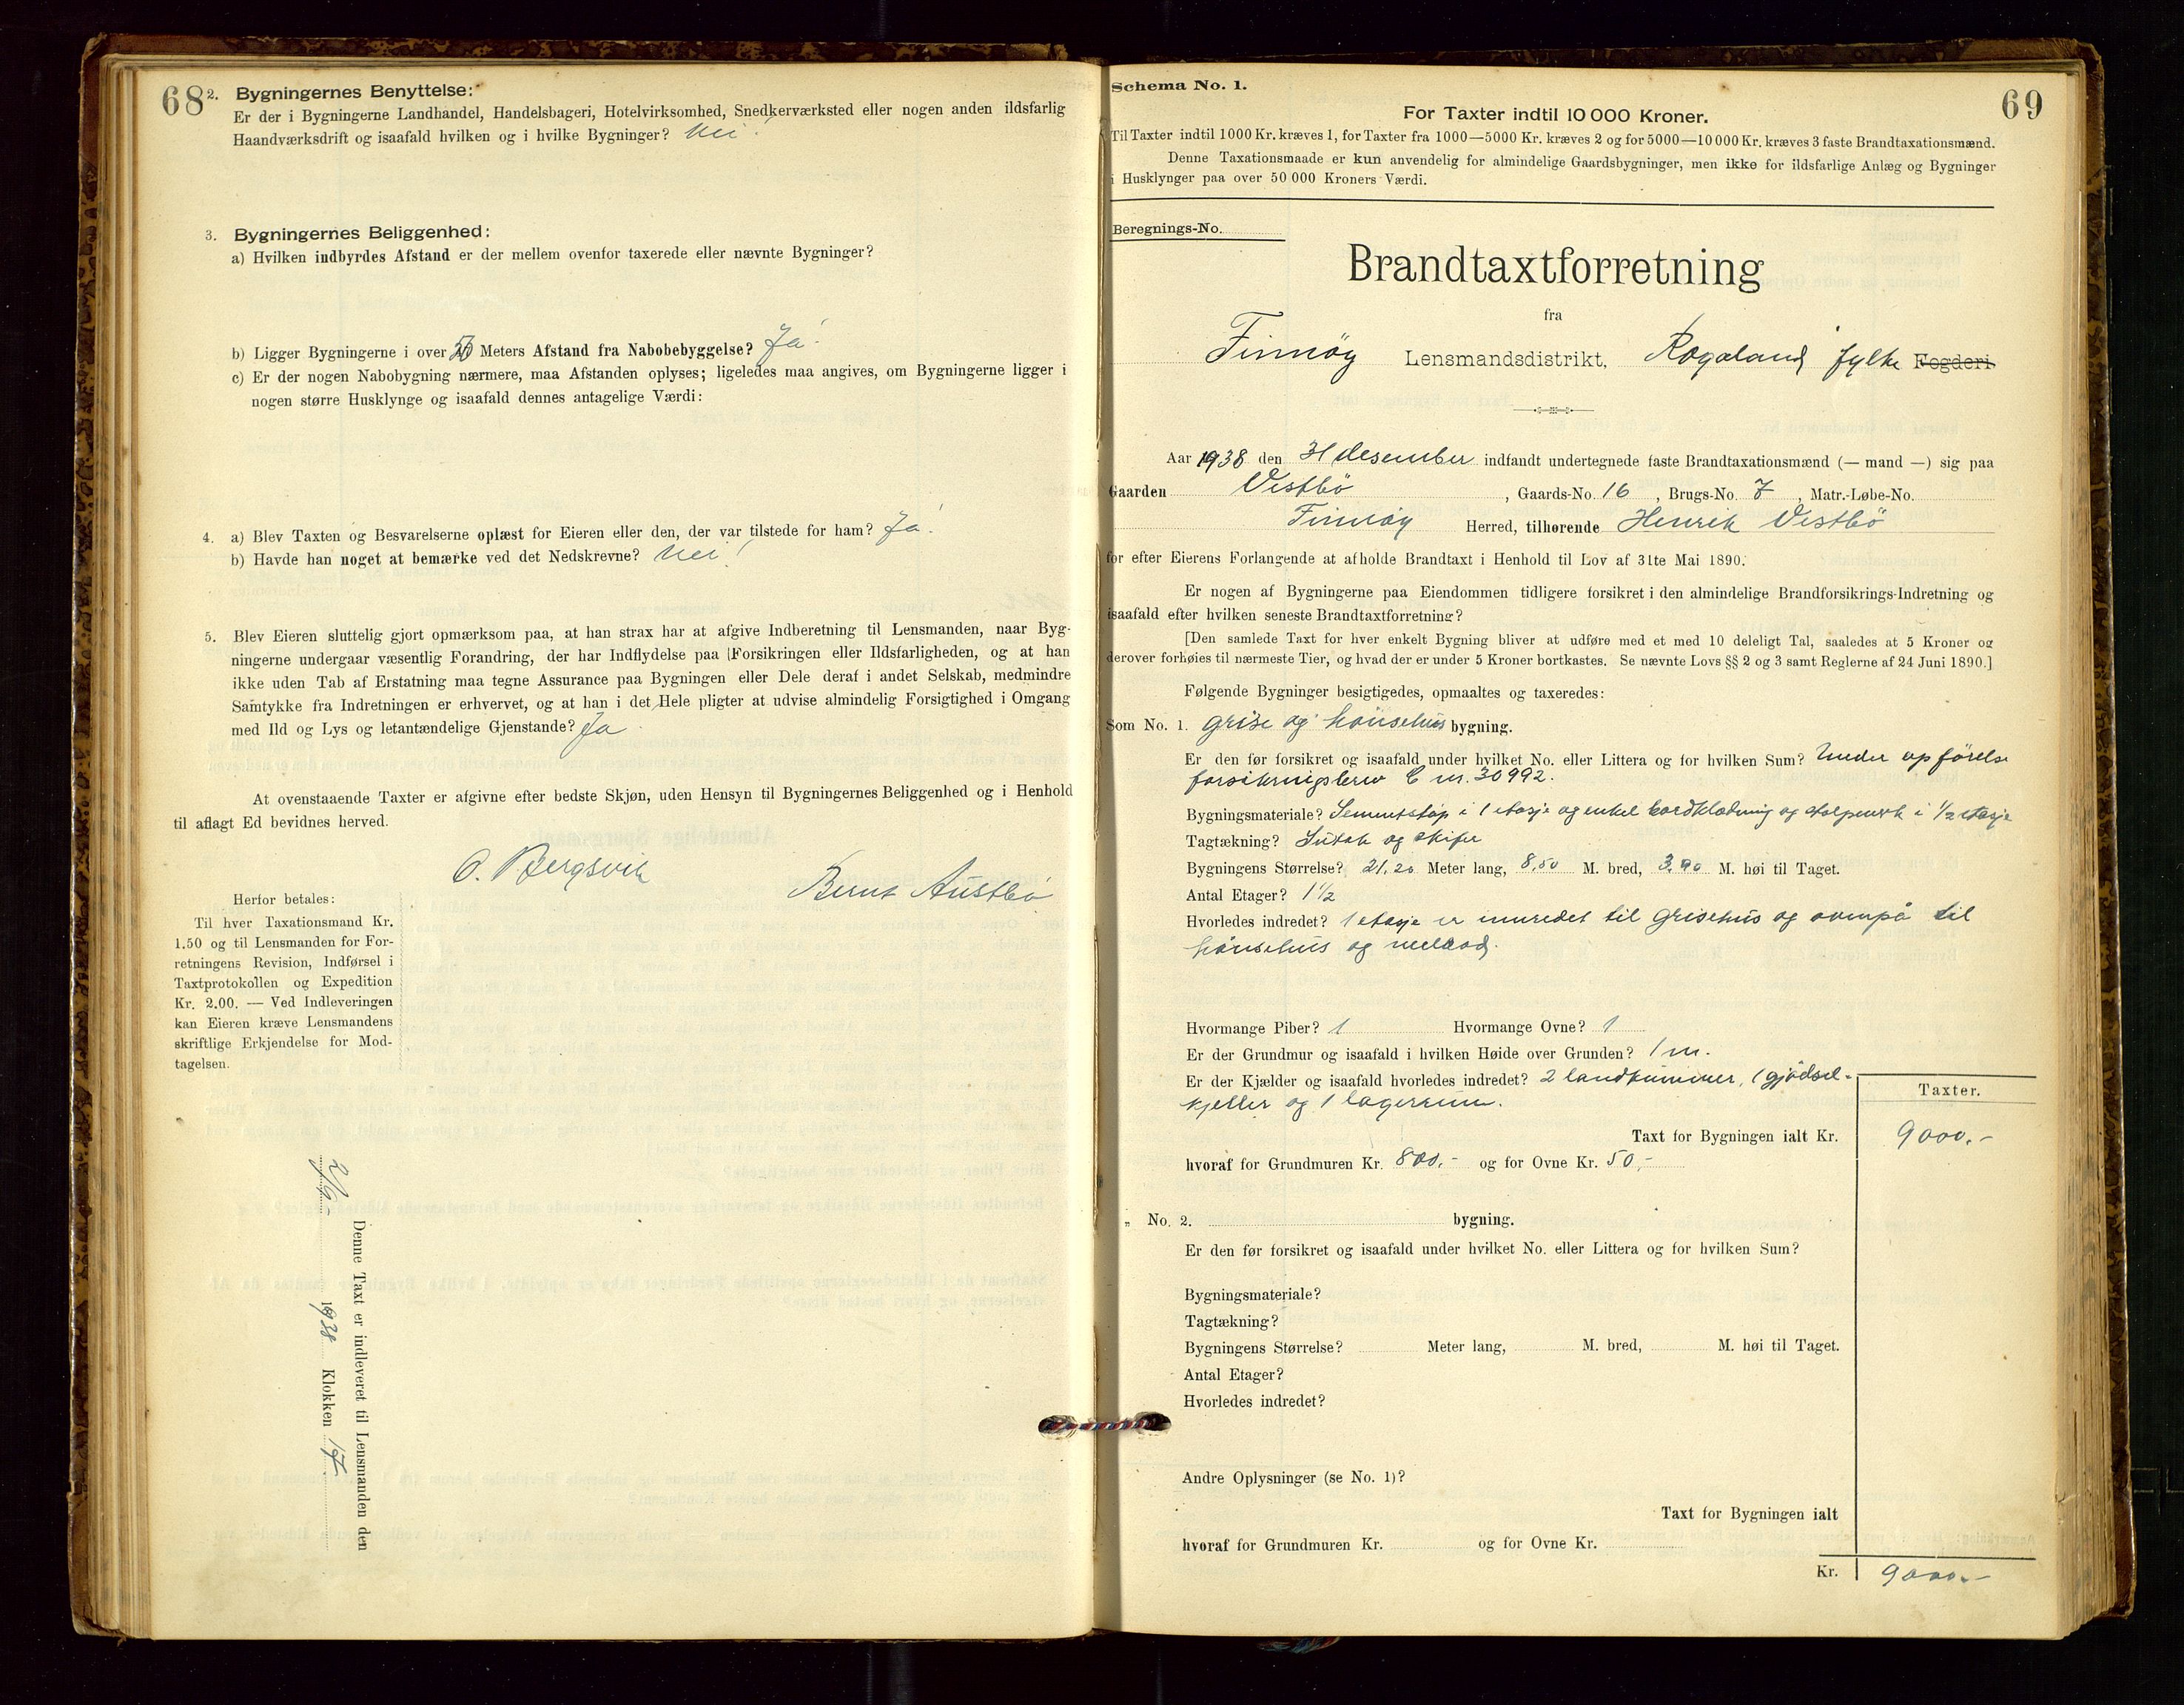 68
2. Bygningernes Benyttelse:
Er der i Bygningerne Landhandel, Handelsbageri, Hotelvirksomhed, Snedkerværksted eller nogen anden ildsfarlig
Haandværksdrift og isaafald hvilken og i hvilke Bygninger? Nei!
3. Bygningernes Beliggenhed:
a) Hvilken indbyrdes Afstand er der mellem ovenfor taxerede eller nævnte Bygninger?
b) Ligger Bygningerne i over Meters Afstand fra Nabobebyggelse? Ja.
c) Er der nogen Nabobygning nærmere, maa Afstanden oplyses; ligeledes maa angives, om Bygningerne ligger i
nogen større Husklynge og isaafald dennes antagelige Værdi:
4. a) Blev Taxten og Besvarelserne oplæst for Eieren eller den, der var tilstede for ham? Ja.
b) Havde han noget at bemærke ved det Nedskrevne? Nei!
5. Blev Eieren sluttelig gjort opmærksom paa, at han strax har at afgive Indberetning til Lensmanden, naar Byg-
ningerne undergaar væsentlig Forandring, der har Indflydelse paa Forsikringen eller Ildsfarligheden, og at han
ikke uden Tab af Erstatning maa tegne Assurance paa Bygningen eller Dele deraf i andet Selskab, medmindre
Samtykke fra Indretningen er erhvervet, og at han i det Hele pligter at udvise almindelig Forsigtighed i Omgang
med Ild og Lys og letantændelige Gjenstande? Ja
At ovenstaaende Taxter er afgivne efter bedste Skjøn, uden Hensyn til Bygningernes Beliggenhed og i Henhold
til aflagt Ed bevidnes herved.
O. Bergsvik
Bernt Austbø
Herfor betales:
Til hver Taxationsmand Kr.
1.50 og til Lensmanden for For-
retningens Revision, Indførsel i
Taxtprotokollen og Expedition
Kr. 2.00. — Ved Indleveringen
kan Eieren kræve Lensmandens
skriftlige Erkjendelse for Mod-
tagelsen.
Denne Taxt er indleveret til Lensmanden den
1938 Klokken 17
69
Schema No. 1.
For Taxter indtil 10 000 Kroner.
Til Taxter indtil 1000 Kr. kræves 1, for Taxter fra 1000—5000 Kr. kræves 2 og for 5000—10 000 Kr. kræves 3 faste Brandtaxationsmænd.
Denne Taxationsmaade er kun anvendelig for almindelige Gaardsbygninger, men ikke for ildsfarlige Anlæg og Bygninger
i Husklynger paa over 50 000 Kroners Værdi.
Beregnings-No.
Brandtaxtforretning
fra
Finnøy Lensmandsdistrikt, Rogaland fylke Fogderi
Aar 1938 den 31 desember indfandt undertegnede faste Brandtaxationsmænd (— mand —) sig paa
Gaarden Vestbö, Gaards-No. 16, Brugs-No. 7, Matr.-Løbe-No.
Finnöy Herred, tilhørende Henrik Vestbö
for efter Eierens Forlangende at afholde Brandtaxt i Henhold til Lov af 31te Mai 1890.
Er nogen af Bygningerne paa Eiendommen tidligere forsikret i den almindelige Brandforsikrings-Indretning og
isaafald efter hvilken seneste Brandtaxtforretning?
[Den samlede Taxt for hver enkelt Bygning bliver at udføre med et med 10 deleligt Tal, saaledes at 5 Kroner og
derover forhøies til nærmeste Tier, og hvad der er under 5 Kroner bortkastes. Se nævnte Lovs §§ 2 og 3 samt Reglerne af 24 Juni 1890.]
Følgende Bygninger besigtigedes, opmaaltes og taxeredes:
Som No. 1. grise og hönsehus bygning.
Er den før forsikret og isaafald under hvilket No. eller Littera og for hvilken Sum? Under opförelse
forsikringsbrev C nr. 30992.
Bygningsmateriale? Sementstöp i 1 etasje og enkel bordkledning og stolpeverk i 1/2 etasje
Tagtækning? Sutak og skifer
Bygningens Størrelse? 21.20 Meter lang, 8.50 M. bred, 3.90 M. høi til Taget.
Antal Etager? 1 1/2
Hvorledes indredet? 1 etasje er innredet til grisehus og ovenpå til
hönsehus og
Hvormange Piber? 1 Hvormange Ovne? 1
Er der Grundmur og isaafald i hvilken Høide over Grunden? 1 m.
Er der Kjælder og isaafald hvorledes indredet? 2 landkummer, 1 gjödsel-
kjeller og 1 lagerrum.
Taxter.
Taxt for Bygningen ialt Kr. 9000.-
hvoraf for Grundmuren Kr. 800.- og for Ovne Kr. 50.-
„ No. 2. bygning.
Er den før forsikret og isaafald under hvilket No. eller Littera og for hvilken Sum?
Bygningsmateriale?
Tagtækning?
Bygningens Størrelse? Meter lang, M. bred, M. høi til Taget.
Antal Etager?
Hvorledes indredet?
Andre Oplysninger (se No. 1)?
Taxt for Bygningen ialt
hvoraf for Grundmuren Kr. og for Ovne Kr.
Kr. 9000.-